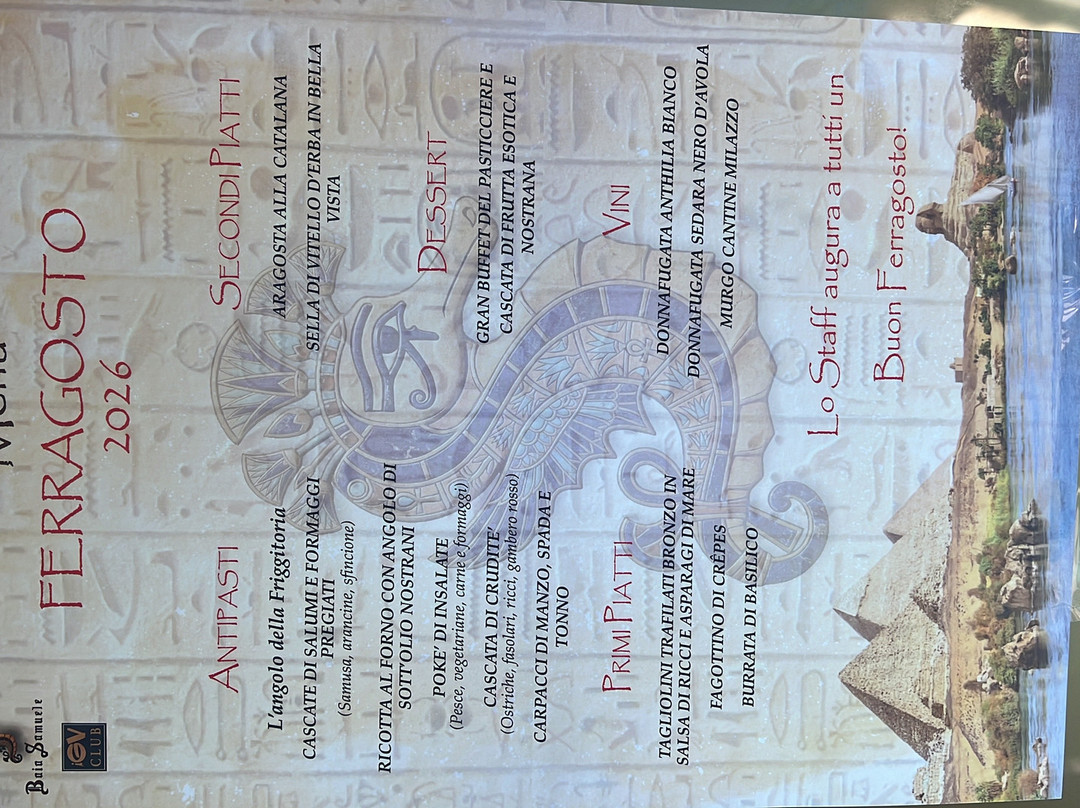 Baia Samuele
iGV
CLUB
Menù
FERRAGOSTO
2026
ANTIPASTI
L'angolo della Friggitoria
CASCATE DI SALUMI E FORMAGGI
PREGIATI
(Samusa, arancine, sfincione)
RICOTTA AL FORNO CON ANGOLO DI
SOTT'OLIO NOSTRANI
POKE' DI INSALATE
(Pesce, vegetariane, carne e formaggi)
CASCATA DI CRUDITE'
(Ostriche, fasolari, ricci, gambero rosso)
CARPACCI DI MANZO, SPADA E
TONNO
PRIMI PIATTI
TAGLIOLINI TRAFILATI BRONZO IN
SALSA DI RICCI E ASPARAGI DI MARE
FAGOTTINO DI CRÊPES
BURRATA DI BASILICO
SECONDI PIATTI
ARAGOSTA ALLA CATALANA
SELLA DI VITELLO D'ERBA IN BELLA
VISTA
DESSERT
GRAN BUFFET DEL PASTICCIERE E
CASCATA DI FRUTTA ESOTICA E
NOSTRANA
VINI
DONNAFUGATA ANTHILIA BIANCO
DONNAFUGATA SEDARA NERO D'AVOLA
MURGO CANTINE MILAZZO
Lo Staff augura a tutti un
Buon Ferragosto!